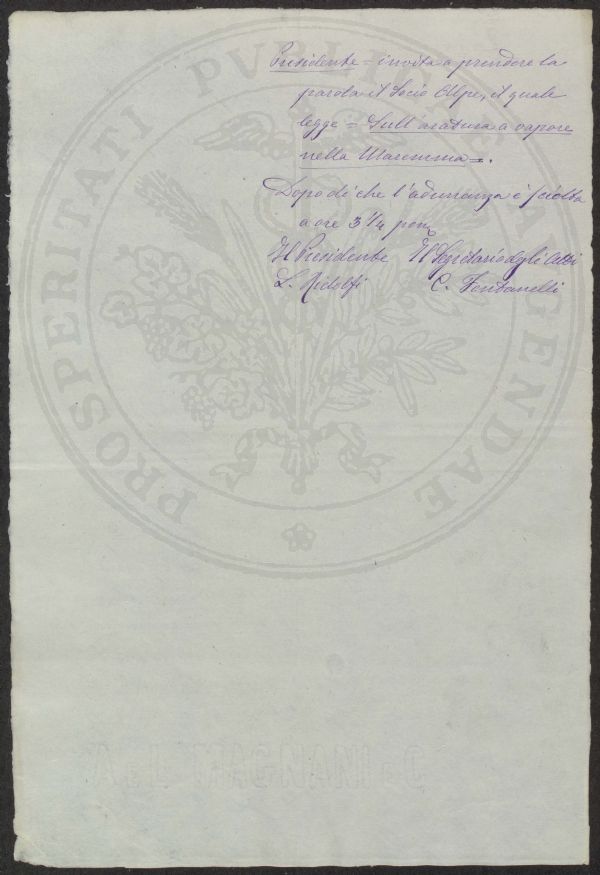 Presidente = invita a prendere la
parola il Socio Alpe, il quale
legge = Sull'aratura a vapore
nella Maremma =.
Dopo di che l'adunanza è sciolta
a ore 3 1/4 pom
Il Presidente Il Segretario degli Atti
L. Ridolfi C. Fontanelli
PROSPERITATI PVBLICAE AVGENDAE